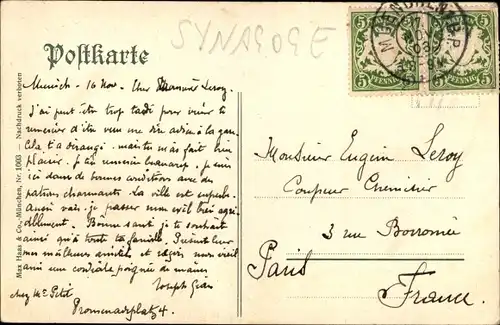 SYNAGOGE
Postkarte
5 PFENNIG 5
5 PFENNIG 5
Max Haas & Co., München, Nr. 1003 — Nachdruck verboten
Munich. 16 Nov. Cher Leroy
J'ai peut être trop tardé pour venir te
remercier d'être venu me dire adieu à la gare.
Cela t'a dérangé. mais tu m'as fait bien
Plaisir. Je t'en remercie beaucoup. je suis
ici dans de bonnes conditions avec des
patrons charmants. La ville est superbe.
Aussi vais-je passer mon exil très agré-
ablement. Bonne santé je te souhaite
ainsi qu'à toute ta famille. Présente leur
mes meilleurs amitiés et reçois, mon vieil
ami une cordiale poignée de mains
Joseph
chez Mr Petit
Promenadeplatz 4.
Monsieur Eugène Leroy
Coupeur Chemisier
3 rue Borromée
Paris
France.